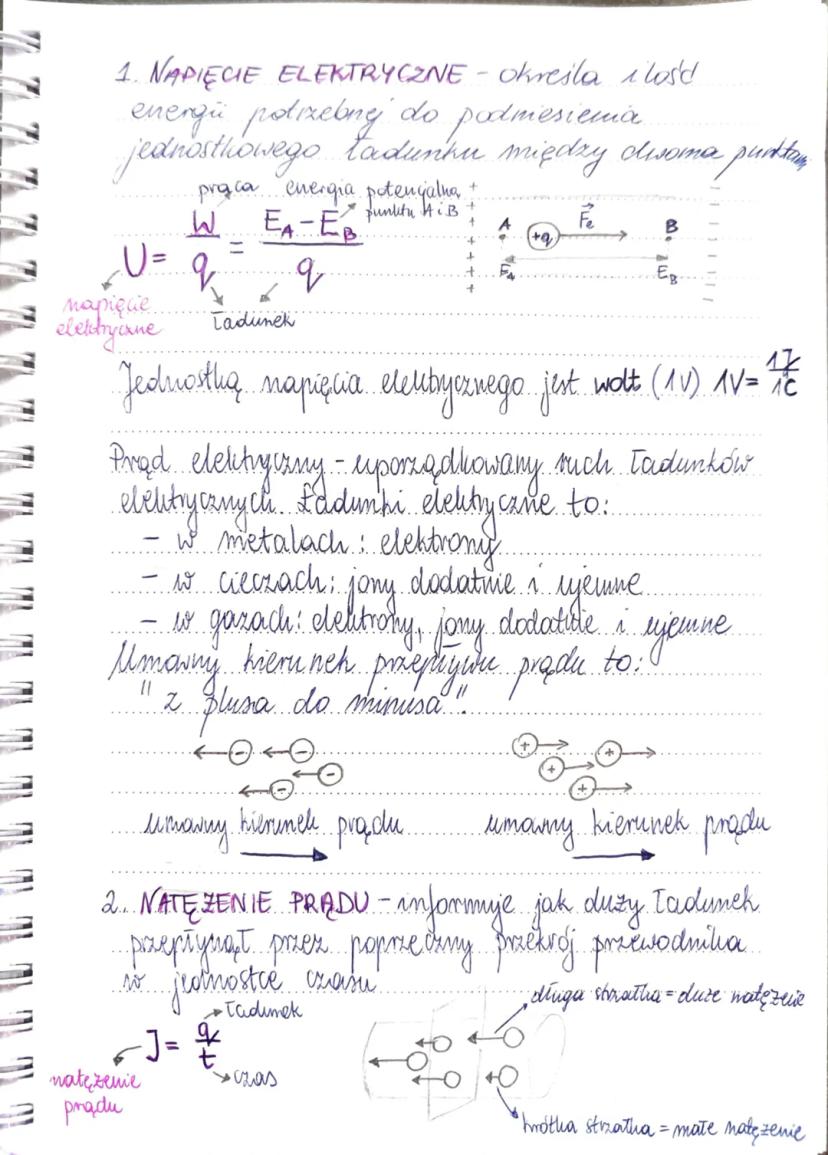 1. NAPIĘCIE ELEKTRYCZNE - określa ilość
energii potrzebnej do podniesienia
jednostkowego ładunku między dwoma punktami
praca energia potencjalna
punktu A i B
U = W/q = (E_A - E_B)/q
napięcie
elektryczne
ładunek
+ + + + + + + +
A +q F⃗e B
E_A E_B
Jednostką napięcia elektrycznego jest wolt (1V) 1V = 1J/1C
Prąd elektryczny - uporządkowany ruch ładunków
elektrycznych. Ładunki elektryczne to:
- w metalach: elektrony
- w cieczach: jony dodatnie i ujemne
- w gazach: elektrony, jony dodatnie i ujemne
Umowny kierunek przepływu prądu to:
"z plusa do minusa".
- - - - + + + +
umowny kierunek prądu umowny kierunek prądu
2. NATĘŻENIE PRĄDU - informuje jak duży ładunek
przepłynął przez poprzeczny przekrój przewodnika
w jednostce czasu
długa strzałka = duże natężenie
ładunek
J = q/t
czas
natężenie
prądu
krótka strzałka = małe natężenie